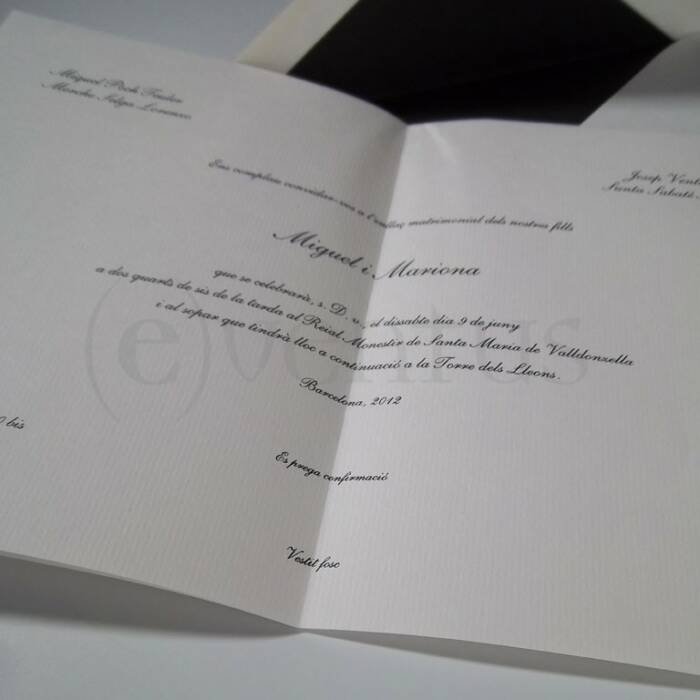 Miquel Puch Tauler
Monche Selga Lorenzo
Josep Vent
Santa Sabaté
Ens complau convidar-vos a l'enllaç matrimonial dels nostres fills
Miquel i Mariona
que se celebrarà, s. D. v., el dissabte dia 9 de juny
a dos quarts de sis de la tarda al Reial Monestir de Santa Maria de Valldonzella
i al sopar que tindrà lloc a continuació a la Torre dels Lleons.
(e)ventus
Barcelona, 2012
bis
Es prega confirmació
Vestit fosc